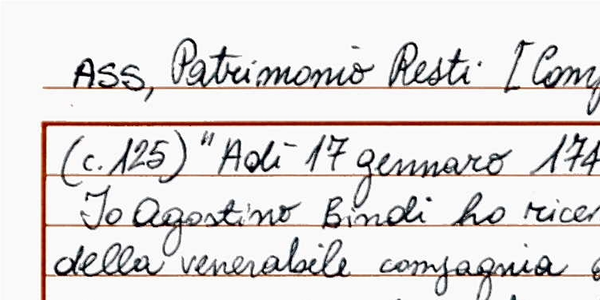 ASS, Patrimonio Resti [Comp
(c. 125) "Adì 17 gennaro 174
Io Agostino Bindi ho ricev
della venerabile compagnia